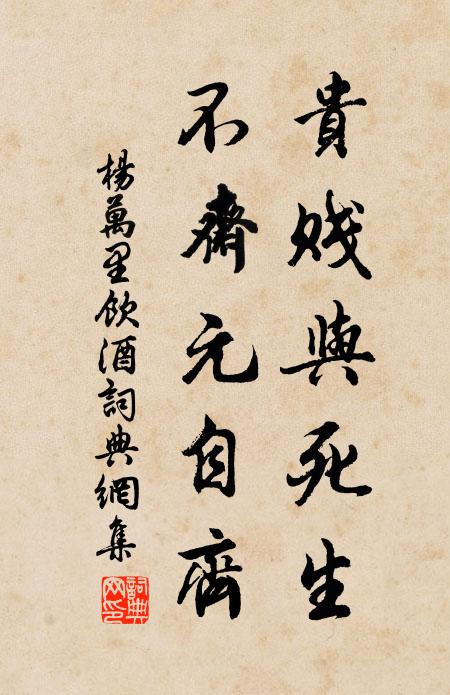 貴賤與死生
不齊元自齊
楊萬里飲酒詞典網集
詞典网印